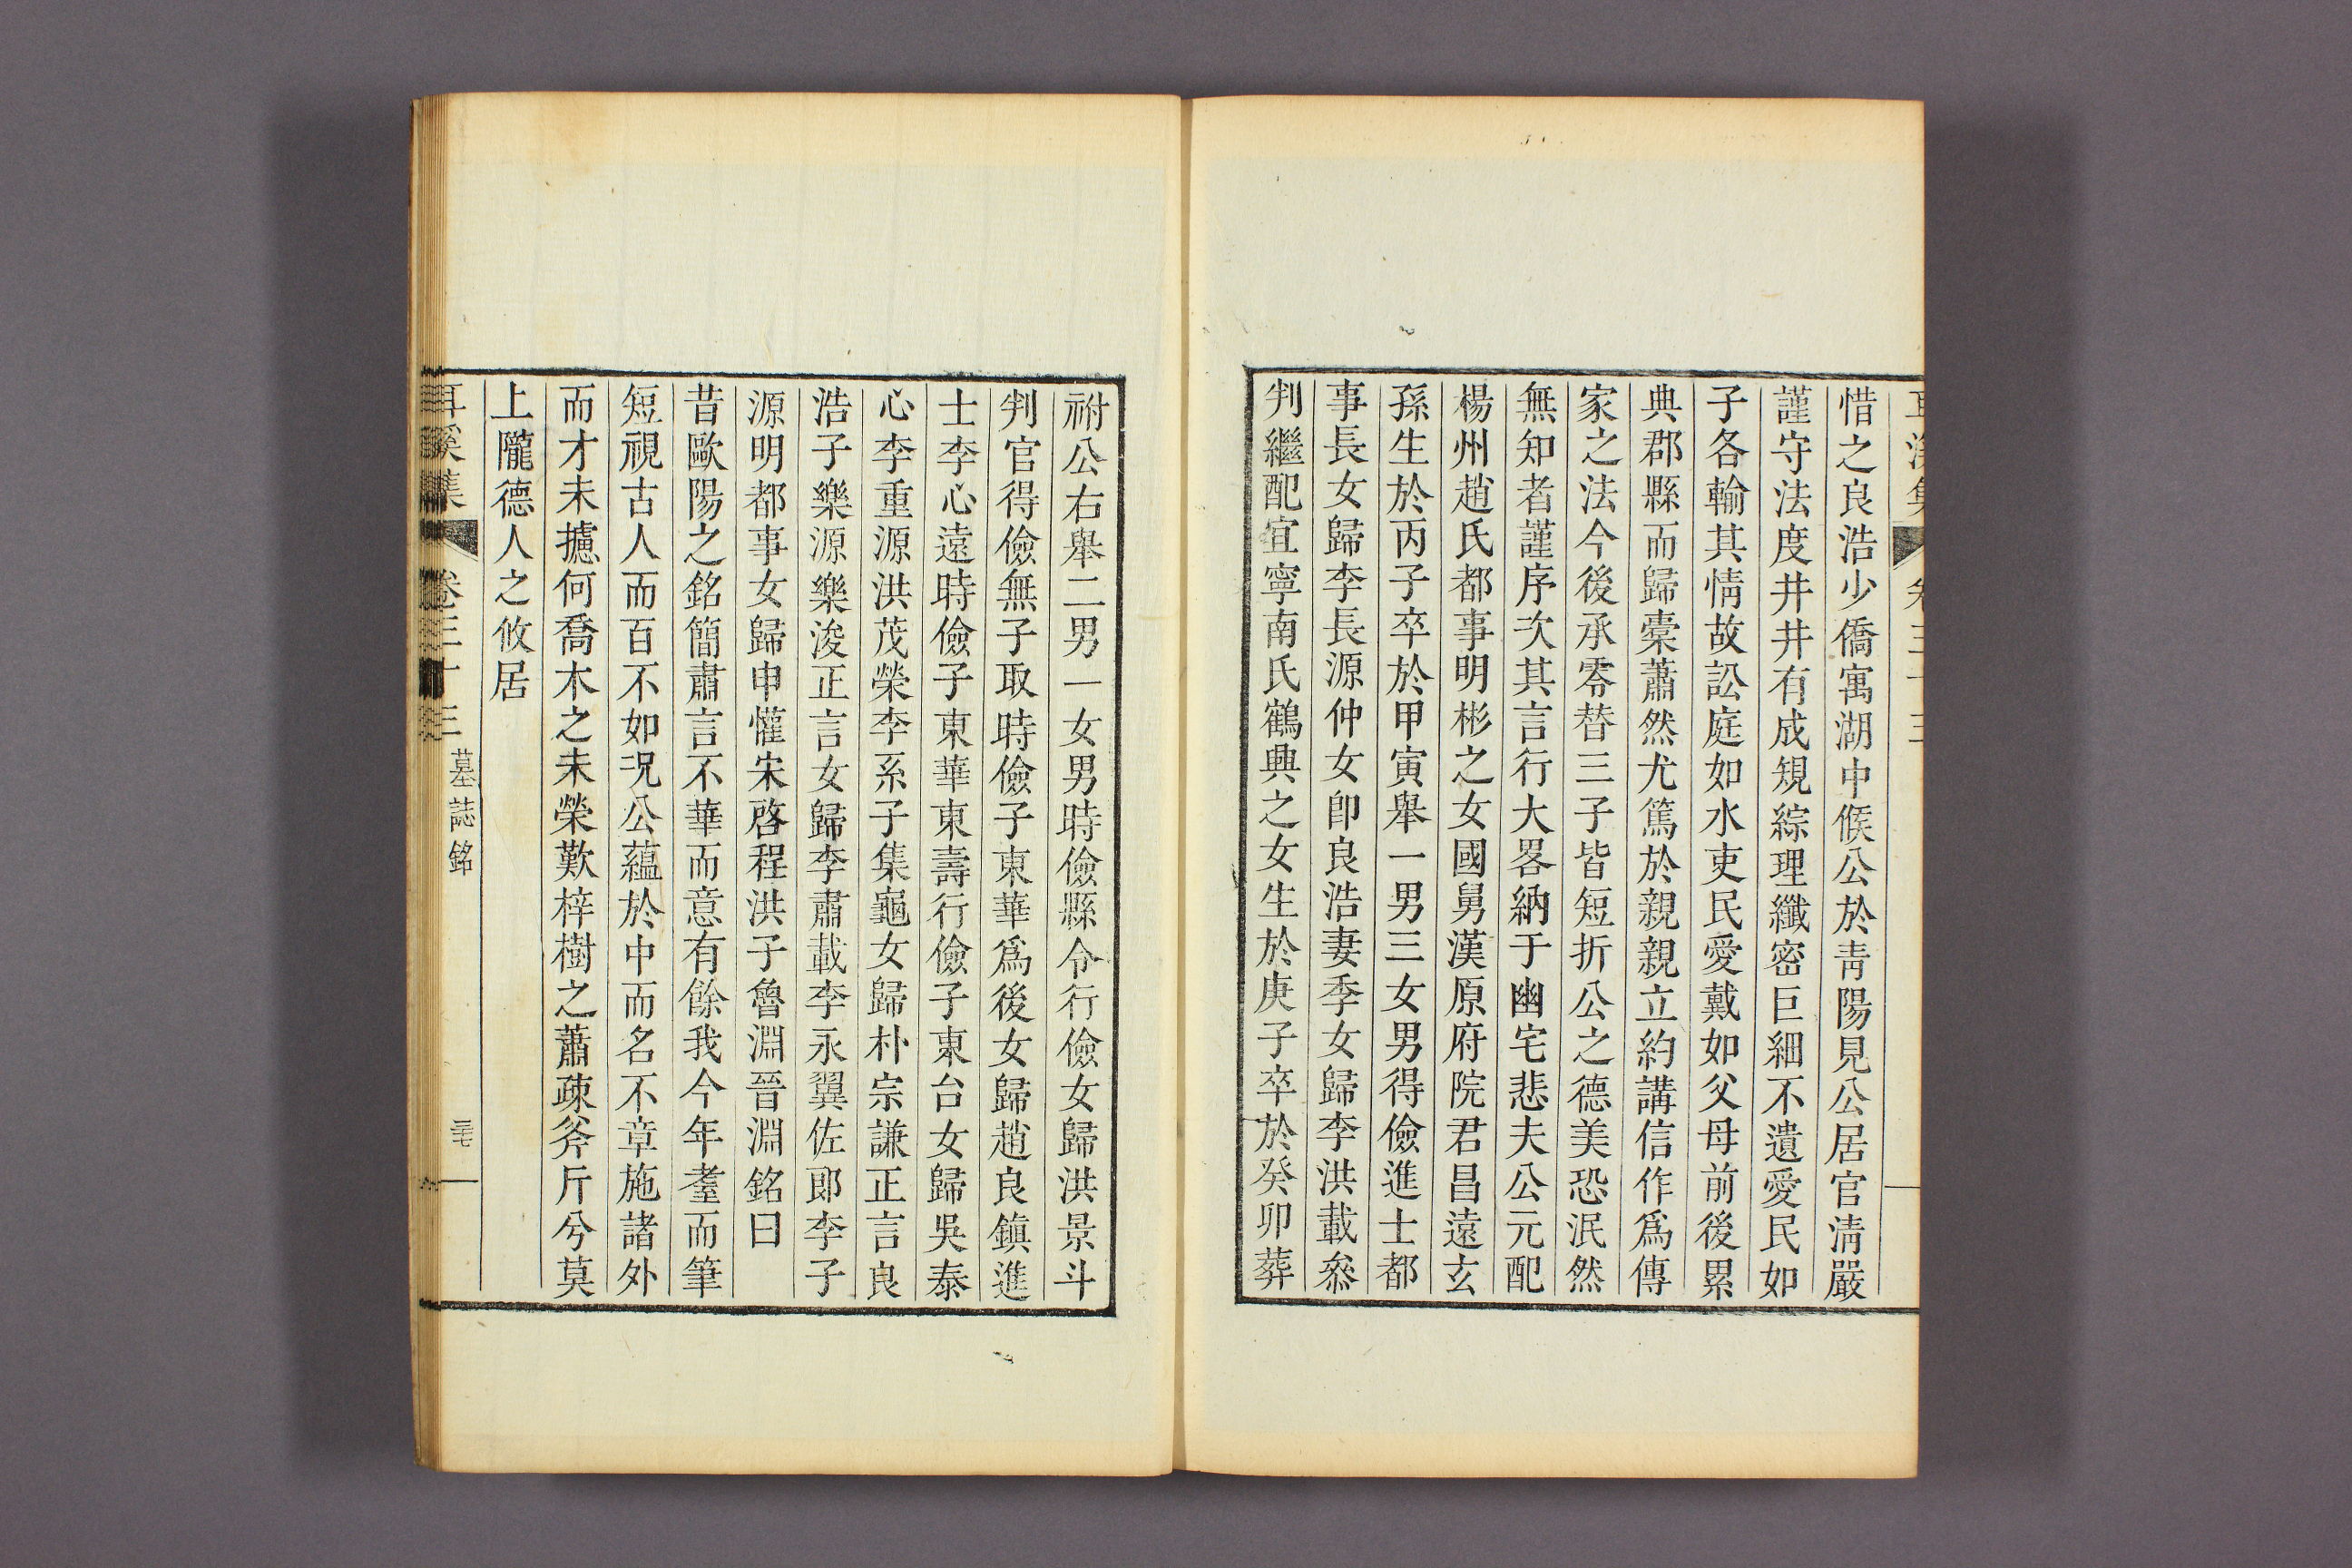 惜之良浩少僑寓湖中候公於靑陽見公居官淸嚴
謹守法度井井有成䂓綜理纖密巨細不遺愛民如
子各輸其情故訟庭如水吏民愛戴如父母前後累
典郡縣而歸槖蕭然尤篤於親親立約講信作爲傳
家之法今後承零替三子皆短折公之德美恐泯然
無知者謹序次其言行大畧納于幽宅悲夫公元配
楊州趙氏都事明彬之女國舅漢原府院君昌遠玄
孫生於丙子卒於甲寅舉一男三女男得儉進士都
事長女歸李長源仲女卽良浩妻季女歸李洪載叅
判繼配宜寧南氏鶴興之女生於庚子卒於癸卯葬
祔公右舉二男一女男時儉縣令行儉女歸洪景斗
判官得儉無子取時儉子東華爲後女歸趙良鎭進
士李心遠時儉子東華東壽行儉子東台女歸吳泰
心李重源洪茂榮李系子集龜女歸朴宗謙正言良
浩子樂源樂浚正言女歸李肅載李永翼佐郞李子
源明都事女歸申懽宋啓程洪子魯淵晉淵銘曰
昔歐陽之銘簡肅言不華而意有餘我今年耋而筆
短視古人而百不如况公蘊於中而名不章施諸外
而才未攄何喬木之未榮歎梓樹之蕭疎斧斤兮莫
上隴德人之攸居
耳溪集 卷三十三 墓誌銘 三七